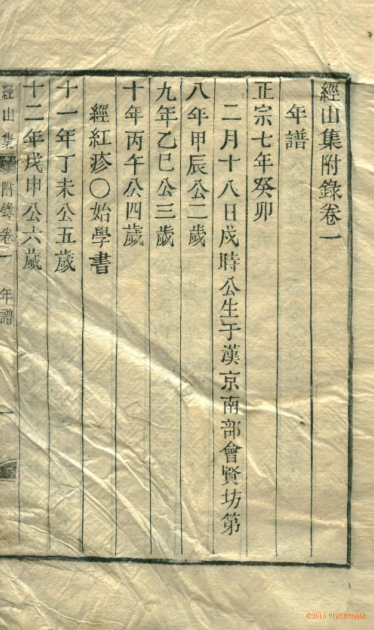 經山集附錄卷一
年譜
正宗七年癸卯
二月十八日戌時公生于漢京南部會賢坊第
八年甲辰公二歲
九年乙巳公三歲
十年丙午公四歲
經紅疹○始學書
十一年丁未公五歲
十二年戊申公六歲
經山集 附錄卷一 年譜 一